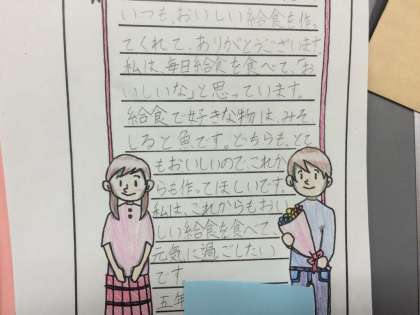 いつも、おいしい給食を作っ
てくれて、ありがとうございます。
私は、毎日給食を食べて、「お
いしいな」と思っています。
給食で好きな物は、みそ
しると魚です。どちらも、とて
もおいしいので、これか
らも作ってほしいです。
私は、これからもおい
しい給食を食べて
元気に過ごしたい
です
五年